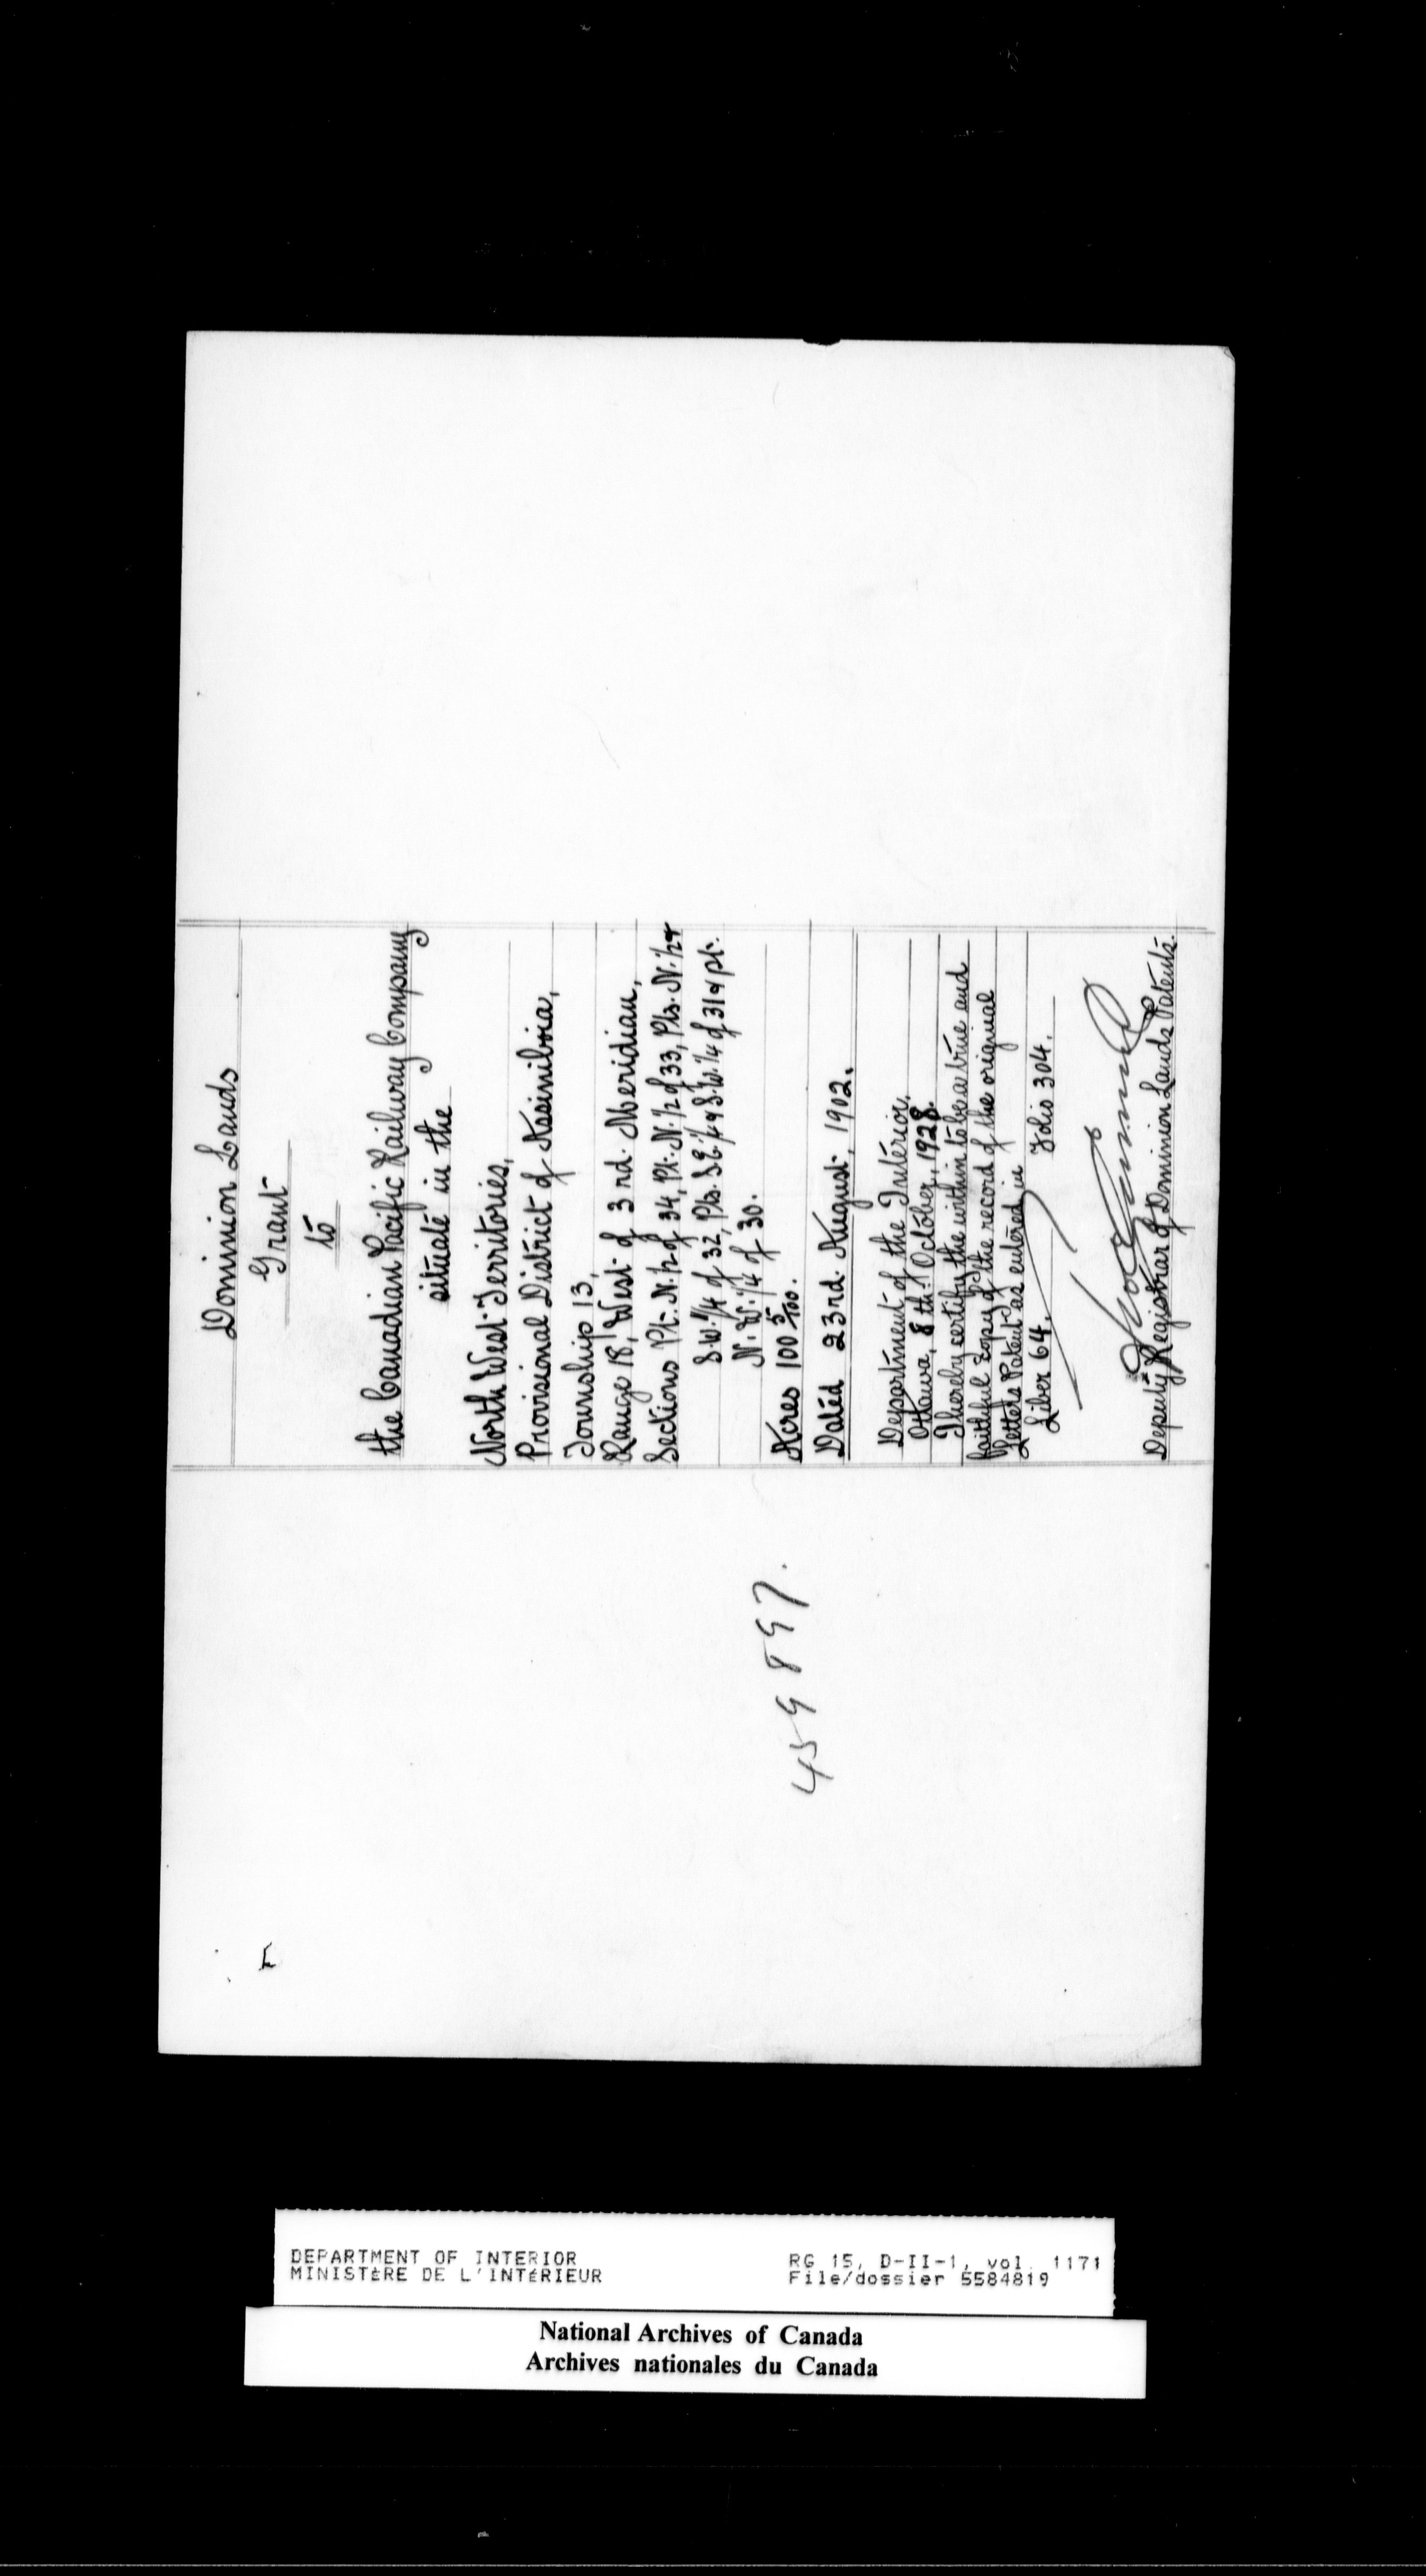 Dominion Lands
Grant
to
the Canadian Pacific Railway Company
situate in the
North West Territories,
Provisional District of Assiniboia,
Township 13,
Range 18, West of 3rd. Meridian,
Sections Pt. N.½ of 34, Pt. N.½ of 33, Pts. N.½ &
S.W.¼ of 32, Pts. S.E.¼ & S.W.¼ of 31 & pt.
N.W.¼ of 30.
Acres 100 5/100.
Dated 23rd. August, 1902.
Department of the Interior,
Ottawa, 8th. October, 1928.
I hereby certify the within to be a true and
faithful copy of the record of the original
Letters Patent as entered in
Liber 64, Folio 304.
Deputy Registrar of Dominion Lands Patents.
459897.
L
DEPARTMENT OF INTERIOR RG 15, D-II-1, vol. 1171
MINISTÈRE DE L'INTÉRIEUR File/dossier 5584819
National Archives of Canada
Archives nationales du Canada